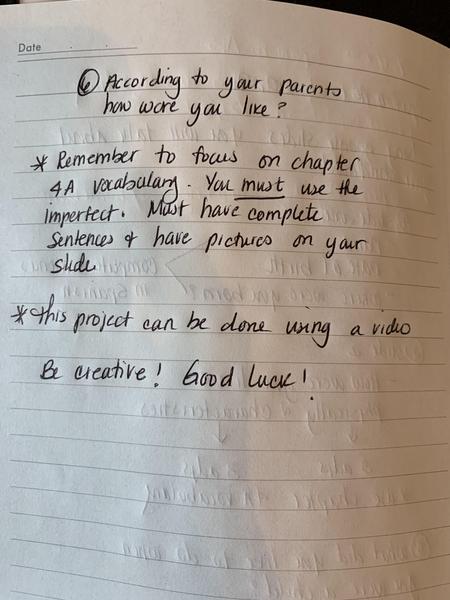 Date
⑥ According to your parents
how were you like?
* Remember to focus on chapter
4A vocabulary. You must use the
imperfect. Must have complete
sentences & have pictures on your
slide
* this project can be done using a video
Be creative! Good luck!